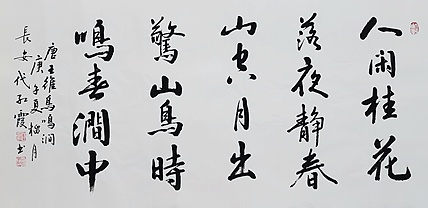 人闲桂花
落夜静春
山空月出
驚山鳥時
鳴春澗中
唐王維鳥鳴澗
庚子夏榴月
長安代紅霞书